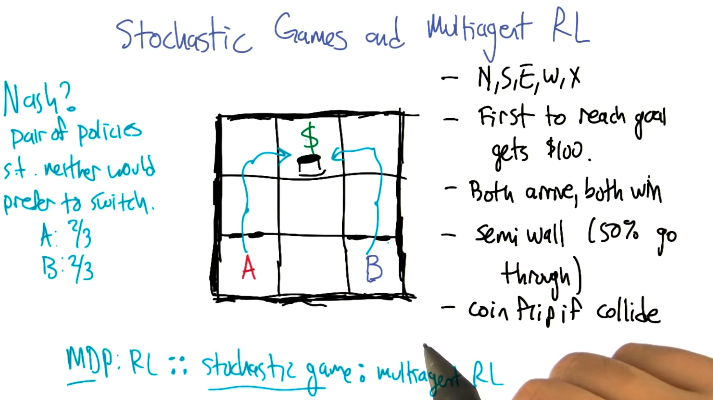 Stochastic Games and Multiagent RL
Nash?
pair of policies
s.t. neither would
prefer to switch.
A: 2/3
B: 2/3
$
A
B
- N,S,E,W,X
- First to reach goal
gets $100.
- Both arrive, both win
- semi wall (50% go
through)
- coin flip if collide
MDP: RL :: stochastic game: multiagent RL